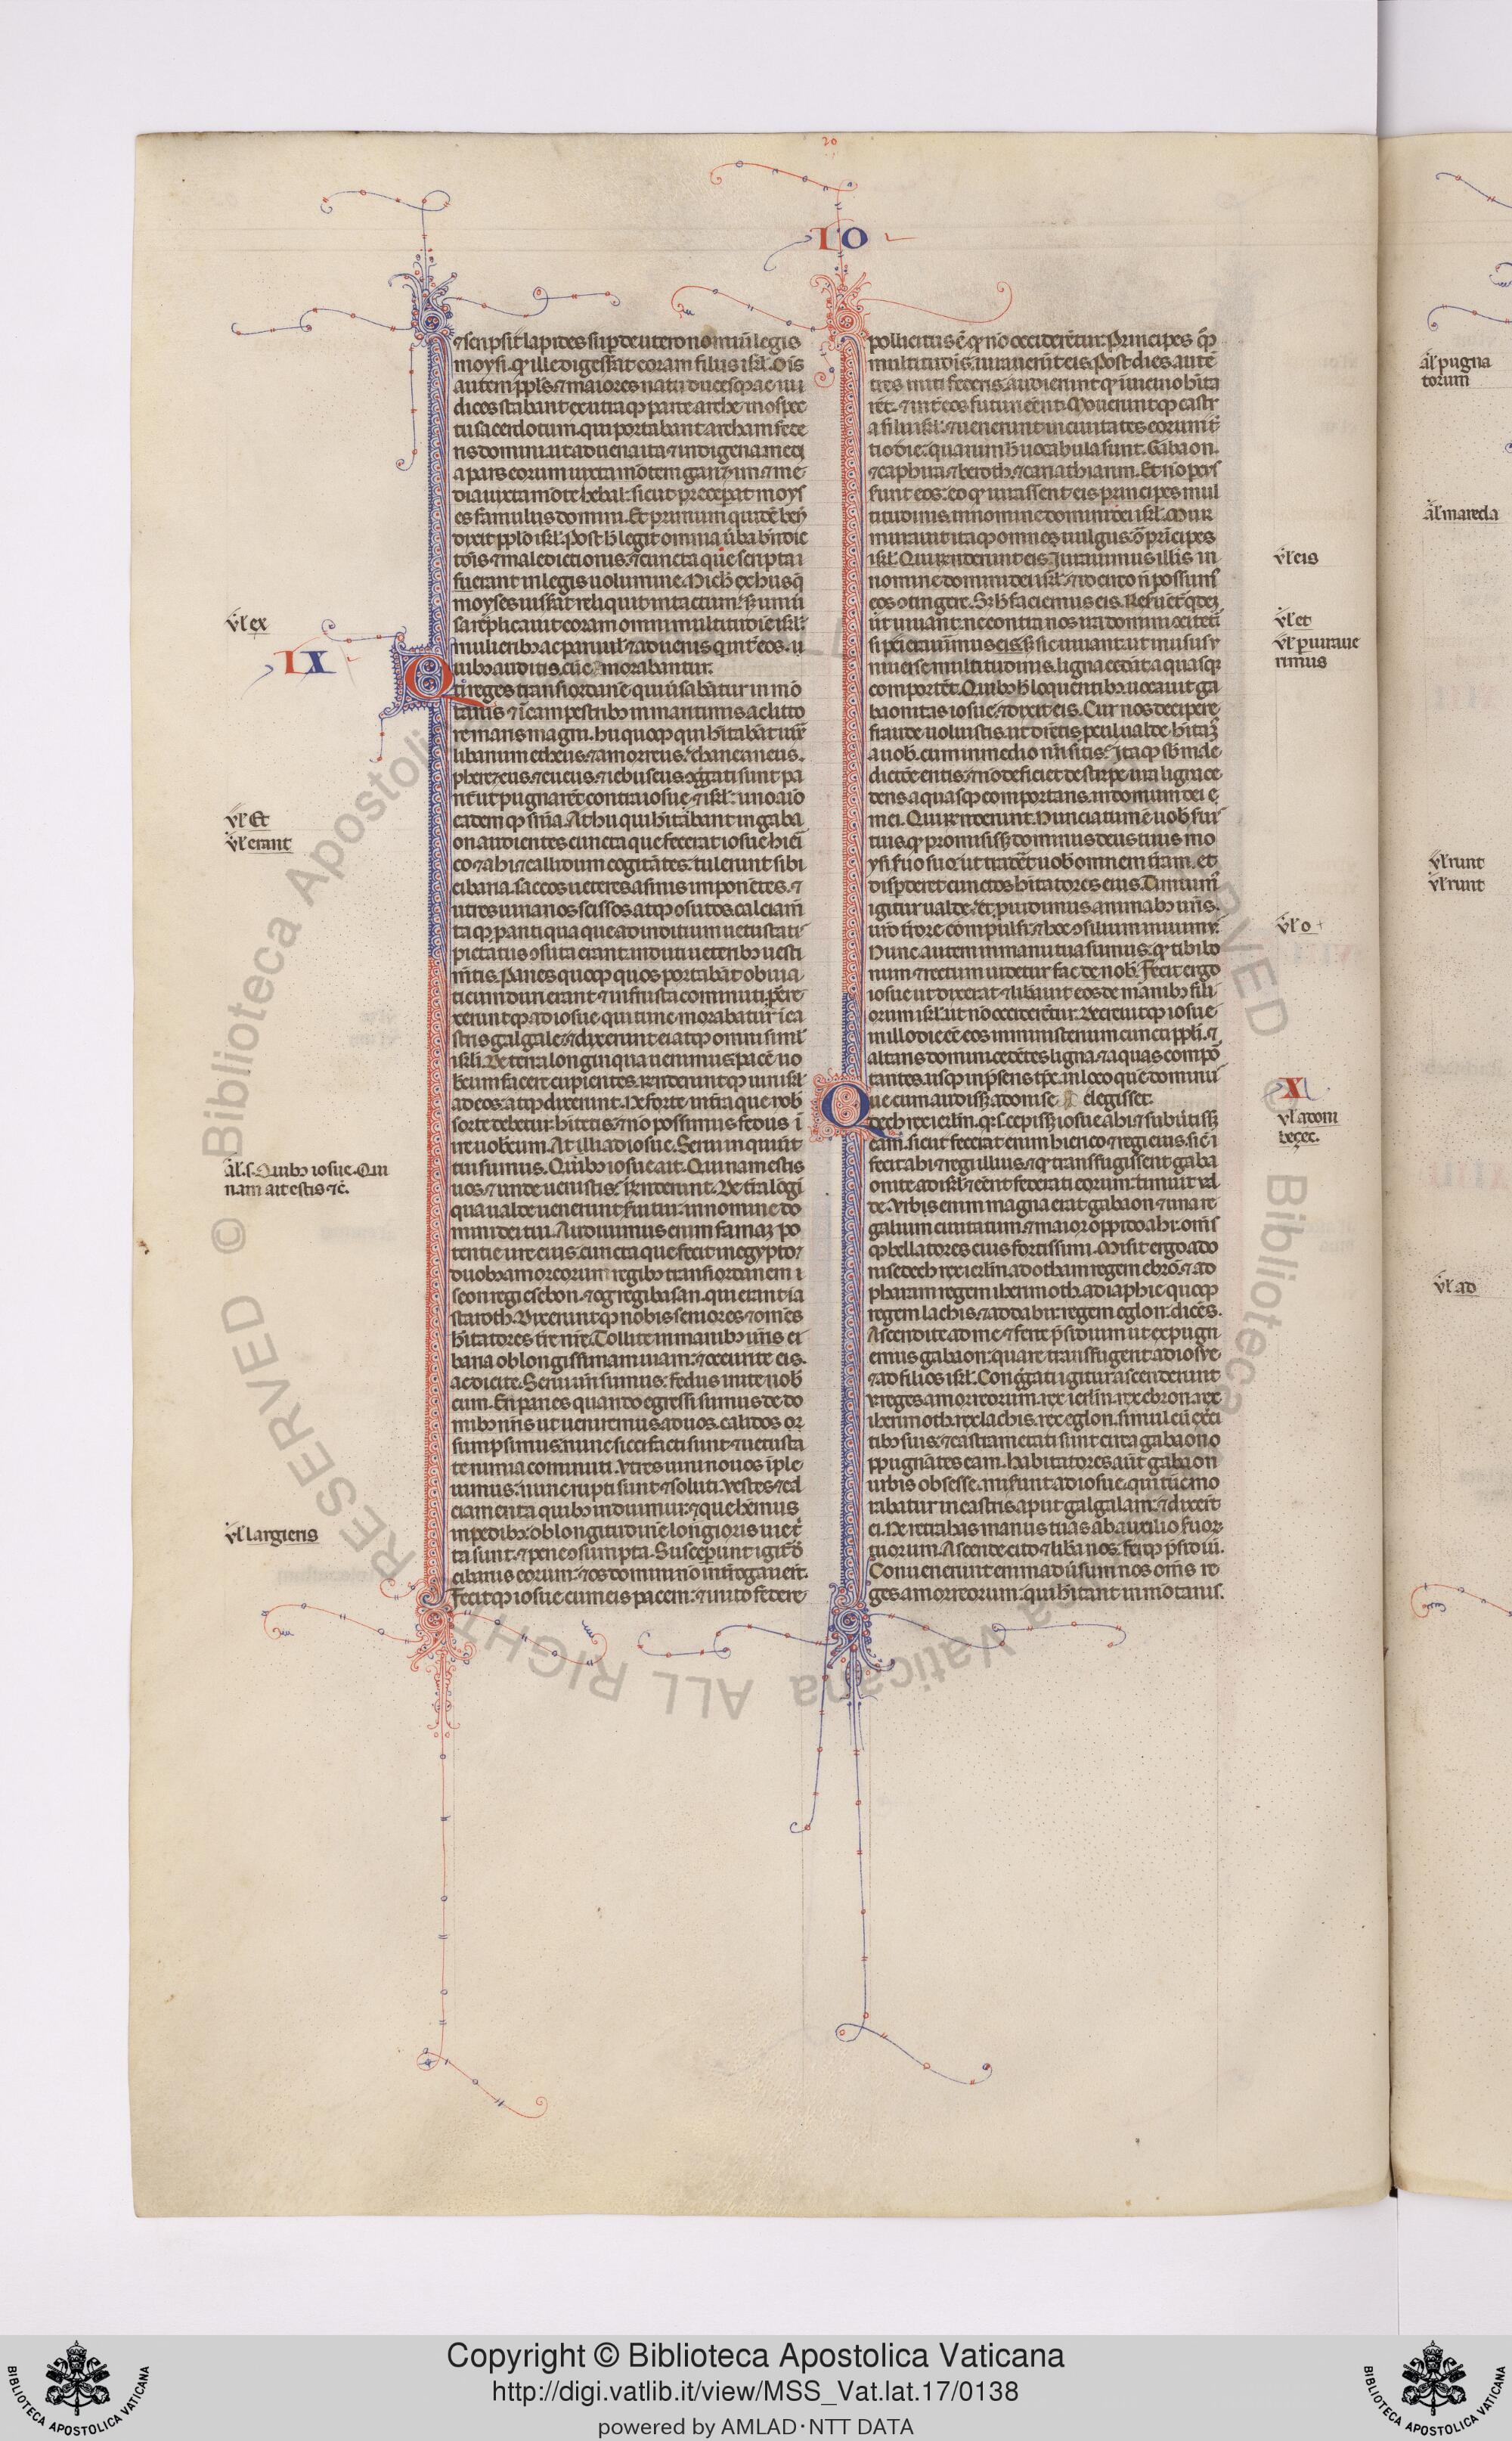 IO
⁊ scripsit lapides sup deuteronomiū legis
moysi. qͥ ille digessat coram filiis isrl. Oīs
autem ppls. ⁊ maiores natu ducesqꝫ ac iu
dices stabant ex utraqꝫ parte arche in ospec
tu sacerdotum. qui portabant archam fede
ris domini. ut aduena ita ⁊ indigena. medi
a pars eorum iuxta mōtem garizim. ⁊ me
dia iuxta mōtē hebal. sicut precepat moys
es famulus domini. Et primum quidē bn̄
dixit pplo isrl. Post h̄ legit omnia ūba bn̄dic
tōis ⁊ maledictionis. ⁊ cuncta que scripta
fuerant in legis uolumine. Nich̄ ex hus q̄
moyses iussat reliquit intactum. sꝫ uniū
sa replicauit coram omni multitudīe isrl.
mulieribꝫ ac paruul. ⁊ aduenis qui int̄ eos
morabantur.
IX
Quibꝫ auditis. cūcti reges transiordanē qui ūsabātur in mō
tanis ⁊ ī campestribꝫ in maritimis ac litto
re maris magni. hii quoqꝫ qui hītabāt iux̄
libanum etheus. ⁊ amorreus. ⁊ chananeus.
pherezeus. ⁊ eueus. ⁊ iebuseus ōg̃gati sunt pa
rit̄ ut pugnarēt contra iosue ⁊ isrl. uno aīo
eadem qꝫ sn̄ia. At hii qui hītabant in gaba
on audientes cuncta que fecerat iosue hieri
co ⁊ ahi ⁊ callidum cogitātes. tulerunt sibi
cibaria. saccos ueteres asinis imponētes. ⁊
utres uinarios scissos atqꝫ osutos. calciam̄
taqꝫ pantiqua que ad inditium uetustati
pictatiis osuta erant. induti ueteribꝫ uesti
m̄tis. Panes quoqꝫ quos portabāt ob uia
ticum duri erant ⁊ in frusta comminuti. pre
xeruntqꝫ ad iosue qui tunc morabatur ī ca
stris galgale. ⁊ dixerunt ei atqꝫ omni siml̄
isrli. De terra longinqua uenimus pacē uo
bcum facere cupientes. rn̄deruntqꝫ uiri isrl
ad eos. atqꝫ dixerunt. Ne forte in tr̄a que nob̄
sorte debetur hītetis. ⁊ nō possimus fedus ī
ire uobcum. At illi ad iosue. Serui inquiūt
tui sumus. Quibꝫ iosue ait. Quinam estis
uos. ⁊ unde uenistis? rn̄derunt. De tr̄a lōgī
qua ualde uenerunt fui tui. in nomine do
mini dei tui. Audiuimus enim famaꝫ po
tentie tue eius. cuncta que fecit in egypto. ⁊
duobꝫ amoreorum regibꝫ transiordanem
seon regi esebon. ⁊ og regi basan. qui erant ī a
staroth. Dixeruntqꝫ nobis seniores ⁊ om̄es
hītatores tr̄e nr̄e. Tollite in manibꝫ ur̄is ci
baria ob longissimam uiam. ⁊ occurrite eis.
ac dicite. Serui ur̄i sumus. fedus inite nob̄
cum. En panes quando egressi sumus de do
mibꝫ nr̄is ut ueniremus ad uos. calidos
sumpsimus. nunc sicci facti sunt. ⁊ uetusta
te nimia cominuti. Vtres uini nouos īple
uimus. nunc rupti sunt ⁊ soluti. Vestes ⁊ cal
ciamenta quibꝫ induimur. ⁊ que hēmus
in pedibꝫ. ob longitudinē longioris uie t̄
ta sunt. ⁊ pene osumpta. Susceperunt igit̄ d̄
cibariis eorum. ⁊ os domini nō intrōgauert̄.
Fecitqꝫ iosue cum eis pacem. ⁊ inito federe
pollicitus ē qͥ nō occiderētur. Principes qꝫ
multitudīs iurauerūt eis. Post dies autē
tres initi federis. audierunt qͥ in uicino hīta
rēt. ⁊ int̄ eos futuri eēnt. Mouerunt qꝫ castr
a filii isrl. ⁊ uenerunt in ciuitates eorum t̄
tio die. quarum h̄ uocabula sunt. Gabaon.
⁊ caphira. ⁊ beroth. ⁊ cariathiarim. Et nō pers
sunt eos. eo qͥ iurassent eis principes mul
titudinis. in nomine domini dei isrl. Mur
murauit itaqꝫ omnes uulgus. ō p̄ncipes
isrl. Qui rn̄derunt eis. Iurauimus illis in
nomine domini dei isrl. ⁊ id circo n̄ possum̄
eos otingere. Sꝫ h̄ faciemus eis. Reseruet̄ qͥdeꝫ
ut uiuant. ne contra nos ira domini ōcitet̄
si peierauimus eis. sꝫ sic uiuant. ut in usus
niuerse multitudinis. ligna cedāt aquasqꝫ
comportēt. Quibꝫ h̄ loquentibꝫ uocauit ga
baonitas iosue. ⁊ dixit eis. Cur nos decipere
fraude uoluistis. ut dicetis pcul ualde hītaꝫ
a uob̄. cum in medio nr̄i sitis. Itaqꝫ sb̄ male
dictōe eritis. ⁊ nō deficiet de stirpe ura ligna ce
dens aquasqꝫ comportans. in domum dei
mei. Qui rn̄derunt. Nunciatum ē nob̄ fui
tuis. qͥ promisissꝫ dominus deus tuus mo
ysi fuo suo. ut traderet uob̄ omnem tr̄am. et
disp̄deret cunctos hītatores eius. Timuim̄
igitur ualde. ⁊ puidimus animabꝫ nr̄is.
uro t̄rore compulsi. ⁊ hoc osilium iniuim̄.
Nunc autem in manu tua sumus. qͥ tibi bo
num ⁊ rectum uidetur fac de nob̄. Fecit ergo
iosue ut dixerat. ⁊ libauit eos de manibꝫ fili
orum isrl. ut nō occiderētur. Decreuitqꝫ iosue
in illo die eē eos in ministerium cuncti ppli. ⁊
altaris domini cedētes ligna. ⁊ aquas compō
tantes. usqꝫ in p̄sens tp̄e. in loco quē dominu
elegisset.
X
Que cum audissꝫ adonise
dech rex ierlm̄. qͥ. s. cepissꝫ iosue ahi. ⁊ subūtissꝫ
eam. sicut fecerat enim hierico ⁊ regi eius. sic ī
fecit ahi ⁊ regi illius. ⁊ qͥ transfugissent gaba
onite ad isrl. ⁊ eēnt federati eorum. timuit ual
de. Vrbis enim magna erat gabaon. ⁊ una re
galium ciuitatum. ⁊ maior oppido ahi. om̄s
qꝫ bellatores eius fortissimi. Misit ergo ado
nisedech rex ierlm̄ ad otham regem ebrō. ⁊ ad
pharam regem iherimoth. ad iaphie quoqꝫ
regem lachis. ⁊ ad dabir. regem eglon. dicēs.
Ascendite ad me. ⁊ ferte p̄sidium ut expugn
emus gabaon. quare transfugerit ad iosue
⁊ ad filios isrl. Cong̃gati igitur ascenderunt
v. reges amorreorum. rex ierlm̄. rex ebron. rex
iherimoth. rex lachis. rex eglon. simul cū ex̄ci
tibꝫ suis. ⁊ castra metati sunt circa gabaon o
ppugnātes eam. habitatores aūt gabaon
urbis obsesse. miserunt ad iosue. qui tūc mo
rabatur in castris aput galgalam. ⁊ dixert̄
ei. Ne retrahas manus tuas ab auxilio fuor
tuorum. Ascende cito ⁊ liba nos. ferqꝫ p̄sidiū.
Conuenerunt enim adūsum nos om̄s re
ges amorreorum. qui hītant in mōtanis.
v̄l ex
v̄l Et
v̄l erant
āl. s. Quibꝫ iosue. Qui
nam ait estis ⁊c̄.
v̄l largiens
v̄l eis
v̄l et
v̄l
rimus
v̄l o
v̄l adoni
beçec.
āl pugna
torum
āl maceda
v̄l runt
v̄l runt
v̄l ad
© Biblioteca Apostolica Vaticana ALL RIGHTS RESERVED
Copyright © Biblioteca Apostolica Vaticana
http://digi.vatlib.it/view/MSS_Vat.lat.17/0138
powered by AMLAD·NTT DATA
BIBLIOTECA APOSTOLICA VATICANA
BIBLIOTECA APOSTOLICA VATICANA